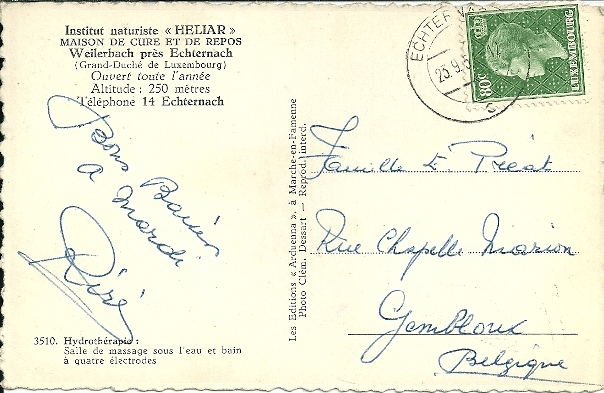 Institut naturiste « HELIAR »
MAISON DE CURE ET DE REPOS
Weilerbach près Echternach
(Grand-Duché de Luxembourg)
Ouvert toute l'année
Altitude : 250 mètres
Téléphone 14 Echternach
Bons Baisers
A mardi
3510. Hydrothérapie :
Salle de massage sous l'eau et bain
à quatre électrodes
Les Editions « Arduenna », à Marche-en-Famenne
Photo Clém. Dessart — Reprod. interd.
80c
LUXEMBOURG
Famille E. Préat
Rue Chapelle Marion
Gembloux
Belgique